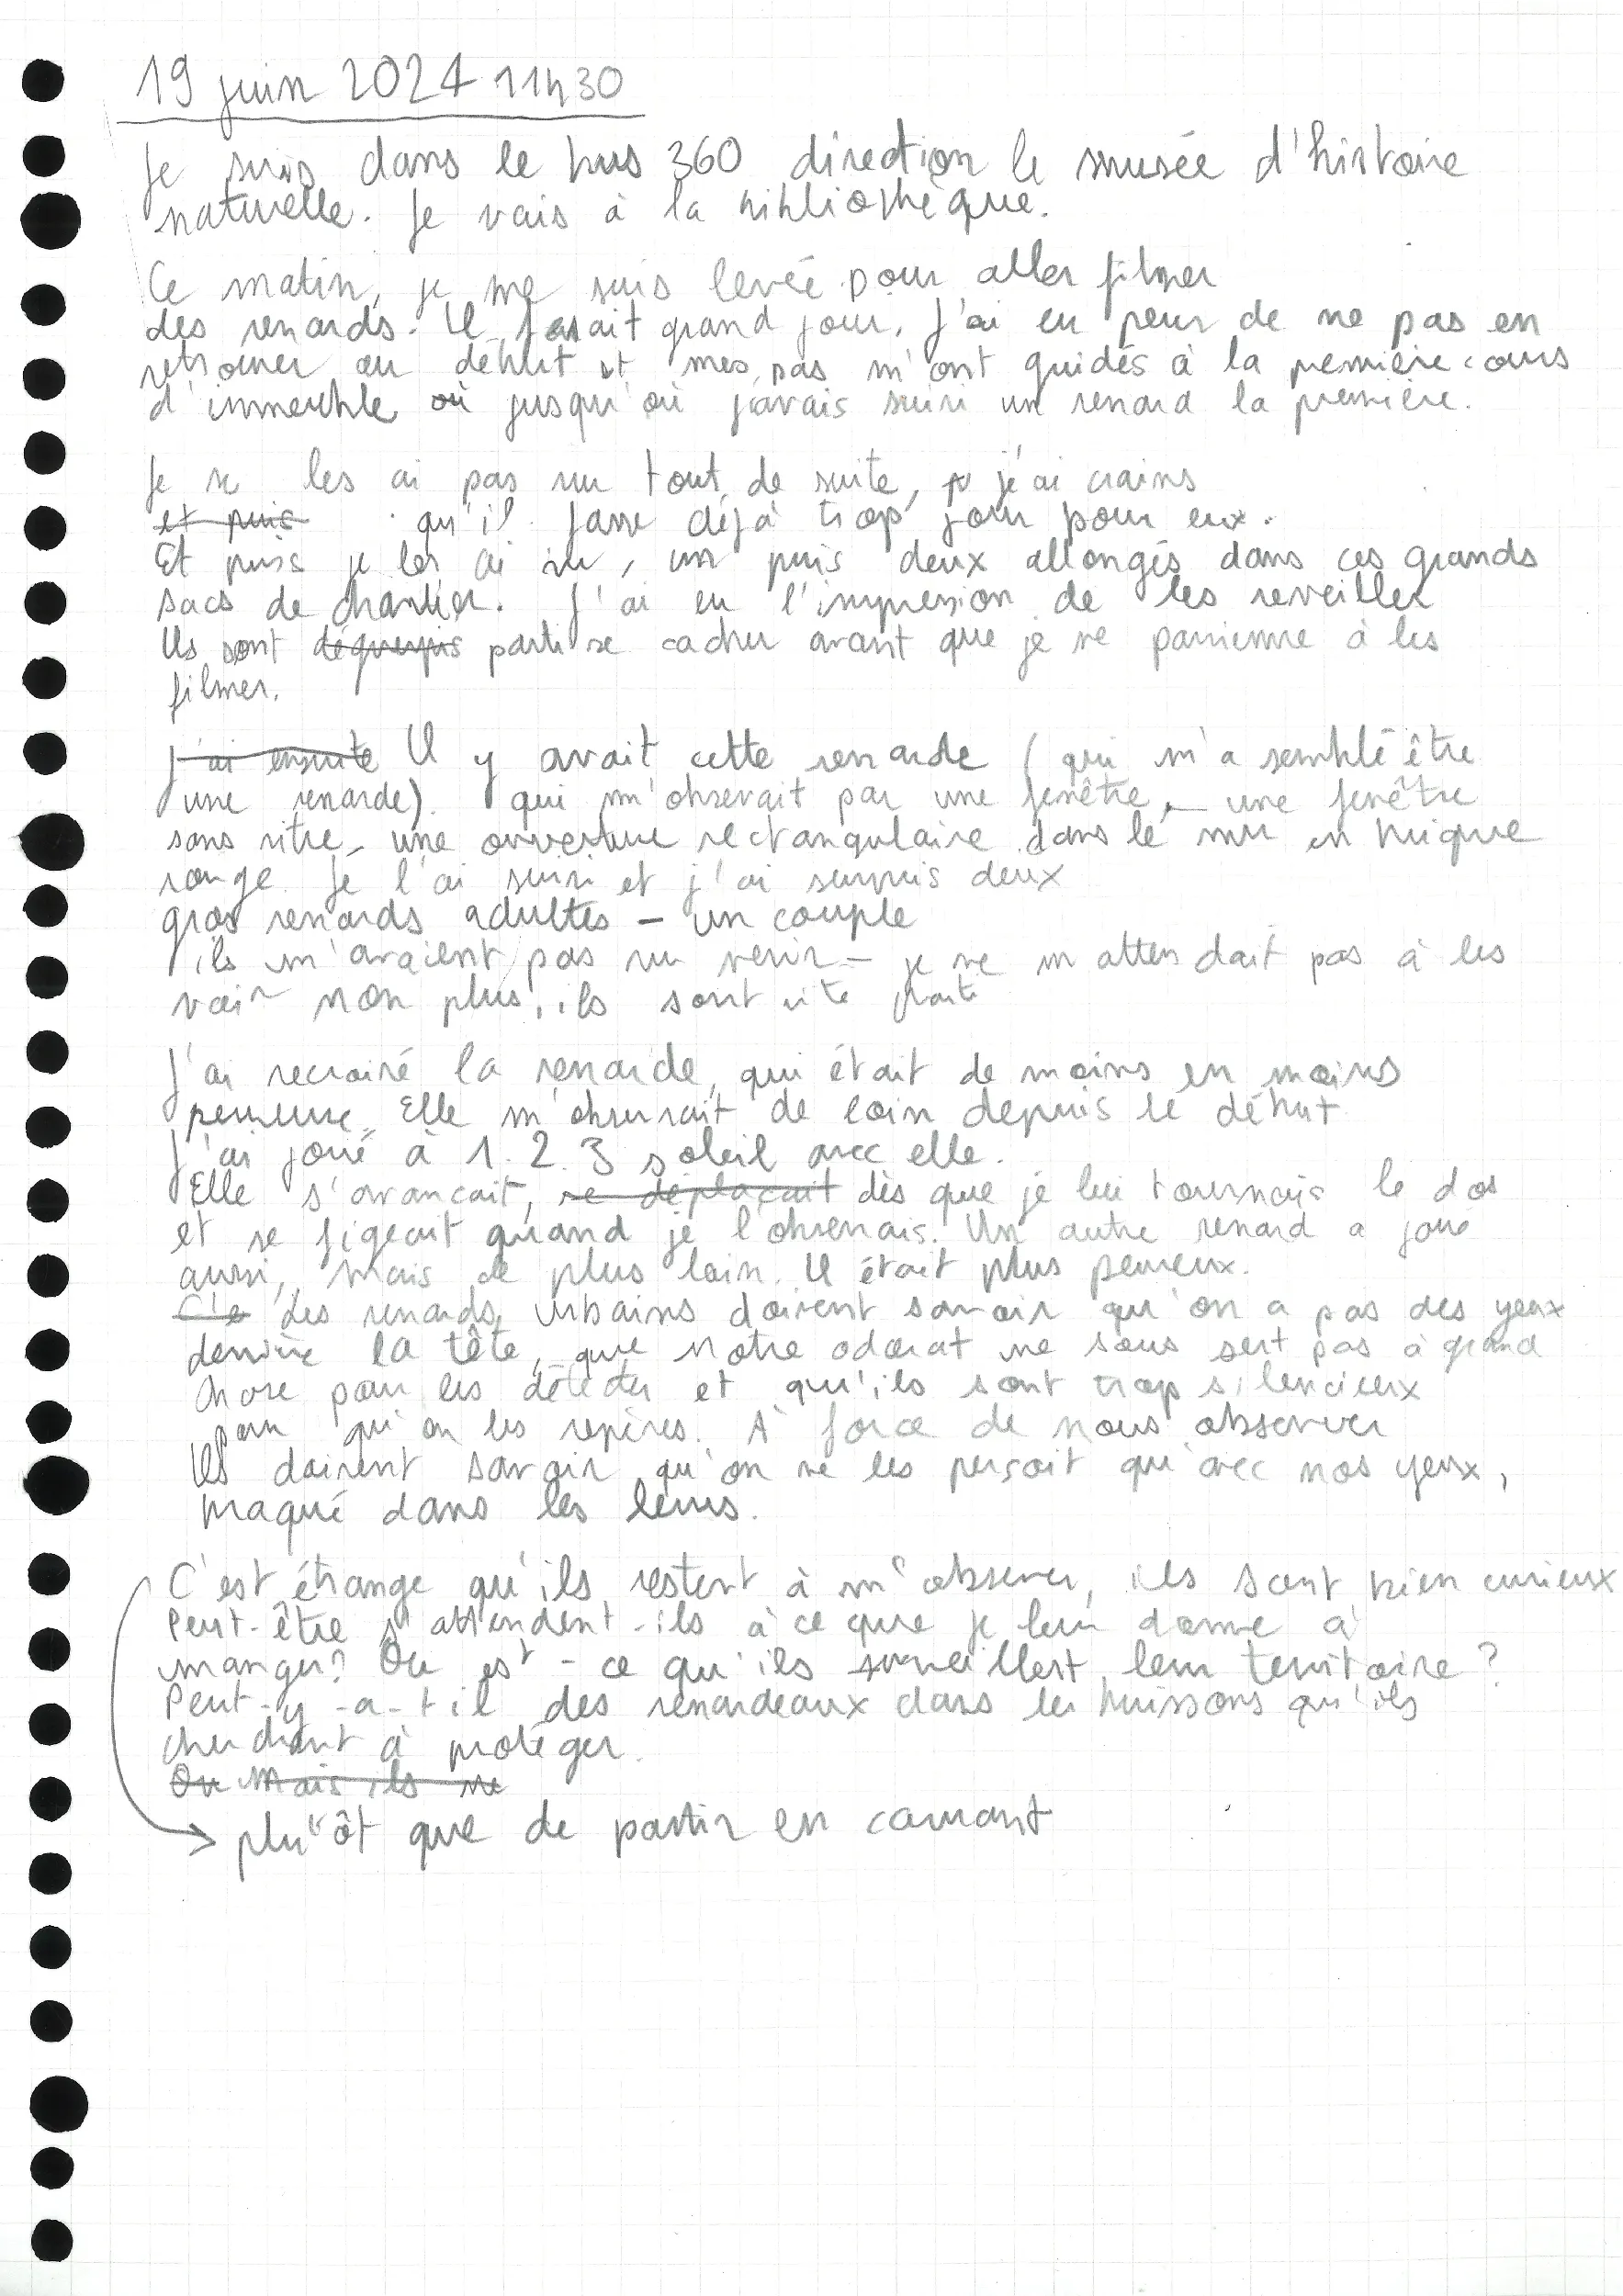 19 juin 2024 11h30
Je suis dans le bus 360 direction le musée d'histoire
naturelle. Je vais à la bibliothèque.
Ce matin, je me suis levée pour aller filmer
des renards. Il faisait grand jour. J'ai eu peur de ne pas en
retrouver au début et mes pas m'ont guidés à la première cours
d'immeuble où jusqu'où j'avais suivi un renard la première.
Je ne les ai pas vu tout de suite, j'ai crains
et puis qu'il fasse déjà trop jour pour eux.
Et puis je les ai vu, un puis deux allongés dans ces grands
sacs de chantier. J'ai eu l'impression de les reveiller
Ils sont déguerpis parti se cacher avant que je ne parvienne à les
filmer.
J'ai ensuite Il y avait cette renarde (qui m'a semblé être
une renarde). qui m'observait par une fenêtre, - une fenêtre
sans vitre, une ouverture rectangulaire dans le mur en brique
rouge. Je l'ai suivi et j'ai surpris deux
gros renards adultes - un couple
ils m'avaient pas vu venir - je ne m'attendait pas à les
voir non plus, ils sont vite
J'ai recroisé la renarde, qui était de moins en moins
peureuse. Elle m'observait de loin depuis le début
J'ai joué à 1. 2. 3 soleil avec elle.
Elle s'avancait, se déplaçait dès que je lui tournais le dos
et se figeait quand je l'observais. Un autre renard a joué
aussi, mais de plus loin. Il était plus peureux.
Les renards urbains doivent savoir qu'on a pas des yeux
derrière la tête, que notre odorat ne nous sert pas à grand
chose pour les détecter et qu'ils sont trop silencieux
pour qu'on les repères. À force de nous observer
Ils doivent savoir qu'on ne les perçoit qu'avec nos yeux,
braqué dans les leurs.
C'est étrange qu'ils restent à m'observer, ils sont bien curieux
Peut-être s'attendent-ils à ce que je leur donne à
manger? Ou est-ce qu'ils surveillent leur territoire ?
Peut-y-a-t il des renardeaux dans les buissons qu'ils
cherchent à protéger.
Ou Mais ils ne
→ plutôt que de partir en courant